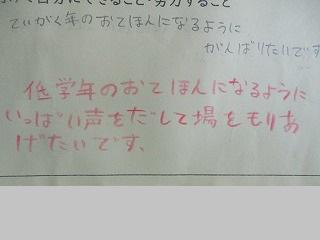 自分にできること・努力すること
ていがく年のおてほんになるように
がんばりたいです
低学年のおてほんになるように
いっぱい声をだして場をもりあ
げたいです、